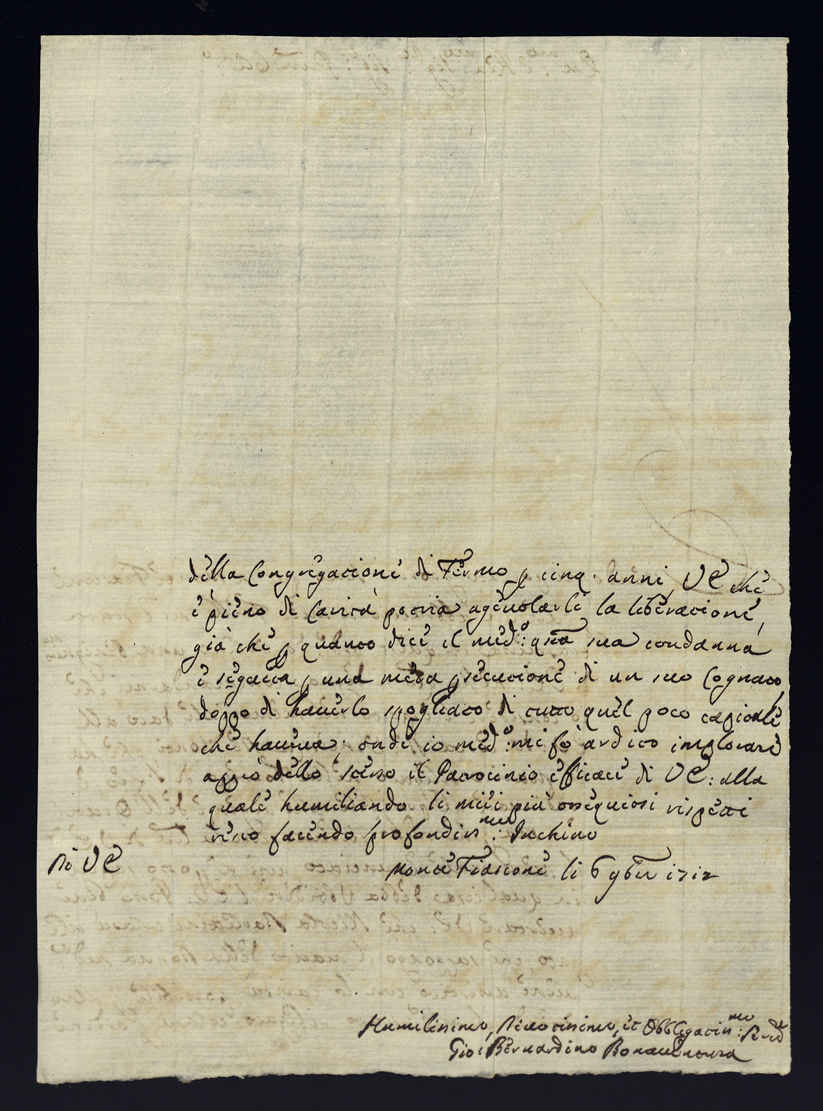 della Congregatione di Fermo p cinq. anni, VE che
è pieno di Carità potria agevolarle la liberatione,
già che p quanto dice il med.º qsta sua condanna
è seguita p una mera psecutione di un suo Cognato
doppo di haverlo spogliato di tutto quel poco capitale
che haveva: onde io med.º mi fò ardito implorare
appo dello stesso il Patrocinio efficace di VE: alla
quale humiliando li miei più ossequiosi rispetti
resto facendo profondiss.mo Inchino
Di VE
Monte Fiascone li 6 9bre 1712
Humilissimo, Divotissimo, et Obbligatiss.mo Serv.re
Gio: Bernardino Bonaventura